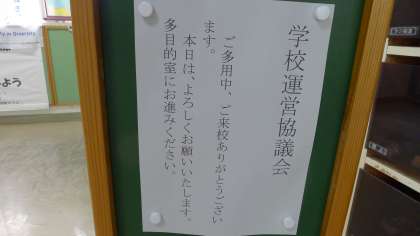 学校運営協議会
ご多用中、ご来校ありがとうござい
ます。
本日は、よろしくお願いいたします。
多目的室にお進みください。